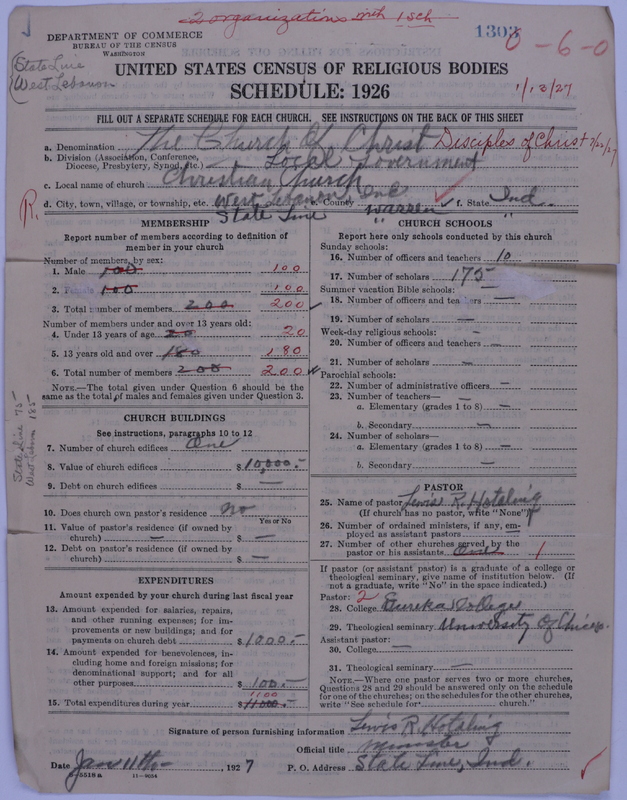 2 organizations with 1 sch
DEPARTMENT OF COMMERCE
BUREAU OF THE CENSUS
WASHINGTON
1303
0-6-0
State Line
West Lebanon
UNITED STATES CENSUS OF RELIGIOUS BODIES
SCHEDULE: 1926
1/13/27
FILL OUT A SEPARATE SCHEDULE FOR EACH CHURCH. SEE INSTRUCTIONS ON THE BACK OF THIS SHEET
a. Denomination The Church Of Christ Disciples of Christ 7/22/27
b. Division (Association, Conference,
Diocese, Presbytery, Synod, etc.) Local Government
c. Local name of church Christian Church
R.
d. City, town, village, or township, etc. West Lebanon, Ind e. County Warren f. State Ind.
State Line " "
MEMBERSHIP
Report number of members according to definition of
member in your church
Number of members, by sex:
1. Male 100 100
2. 100 100
3. Total number of members 200 200
Number of members under and over 13 years old:
4. Under 13 years of age 20 20
5. 13 years old and over 180 180
6. Total number of members 200 200
NOTE.—The total given under Question 6 should be the
same as the total of males and females given under Question 3.
State Line 75
West Lebanon 125
CHURCH BUILDINGS
See instructions, paragraphs 10 to 12
7. Number of church edifices One
8. Value of church edifices $10,000.-
9. Debt on church edifices $ —
10. Does church own pastor's residence No
Yes or No
11. Value of pastor's residence (if owned by
church) — $ —
12. Debt on pastor's residence (if owned by
church) $ —
EXPENDITURES
Amount expended by your church during last fiscal year
13. Amount expended for salaries, repairs,
and other running expenses; for im-
provements or new buildings; and for
payments on church debt $1000.-
14. Amount expended for benevolences, in-
cluding home and foreign missions; for
denominational support; and for all
other purposes $ 100.-
1100
15. Total expenditures during year $11000.-
CHURCH SCHOOLS
Report here only schools conducted by this church
Sunday schools:
16. Number of officers and teachers 10
17. Number of scholars 175
Summer vacation Bible schools:
18. Number of officers and teachers —
19. Number of scholars —
Week-day religious schools: -
20. Number of officers and teachers —
21. Number of scholars —
Parochial schools:
22. Number of administrative officers —
23. Number of teachers—
a. Elementary (grades 1 to 8) —
b. Secondary —
24. Number of scholars—
a. Elementary (grades 1 to 8) —
b. Secondary —
PASTOR
25. Name of pastor Lewis R. Hotaling
(If church has no pastor, write "None")
26. Number of ordained ministers, if any, em-
ployed as assistant pastors
27. Number of other churches served by the
pastor or his assistants One 1
If pastor (or assistant pastor) is a graduate of a college or
theological seminary, give name of institution below. (If
not a graduate, write "No" in the space indicated.)
Pastor: 2
28. College Eureka College
29. Theological seminary University Of Chicago
Assistant pastor:
30. College —
31. Theological seminary —
NOTE.—Where one pastor serves two or more churches,
Questions 28 and 29 should be answered only on the schedule
for one of the churches; on the schedules for the other churches,
write "See schedule for church."
Signature of person furnishing information Lewis R. Hotaling
Official title Minister
Date Jan 11th- 1927 P. O. Address State Line, Ind.
5518 a 11—9054